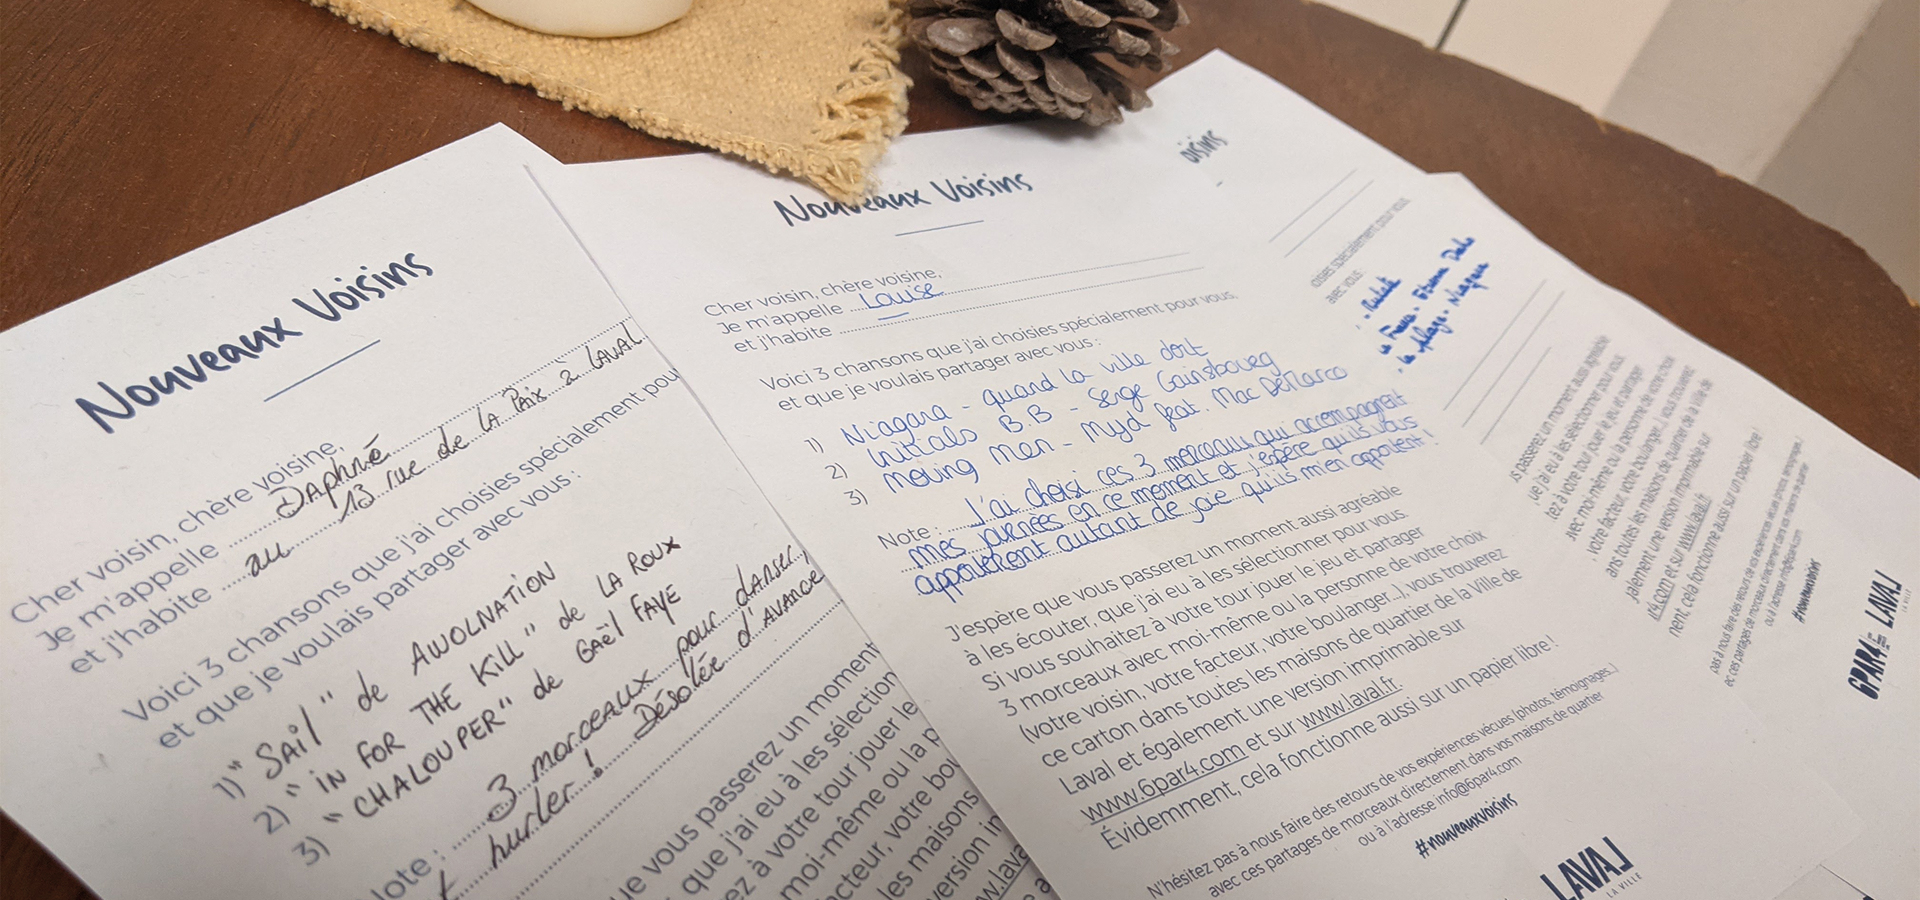 Nouveaux Voisins
Cher voisin, chère voisine,
Je m'appelle Daphné
et j'habite au 13 rue de LA PAIX à LAVAL
Voici 3 chansons que j'ai choisies spécialement pou
et que je voulais partager avec vous :
1) "SAIL" de AWOLNATION
2) "IN FOR THE KILL" de LA ROUX
3) "CHALOUPER" de GAËL FAYE
Note : 3 morceaux pour danser,
hurler ! Désolée d'AVANCE
e vous passerez un moment
que j'ai eu à les sélection
ez à votre tour jouer le
moi-même ou la p
acteur, votre bou
les maisons
version in
w.lava
Nouveaux Voisins
Cher voisin, chère voisine,
Je m'appelle Louise
et j'habite
Voici 3 chansons que j'ai choisies spécialement pour vous,
et que je voulais partager avec vous :
1) Niagara - quand la ville dort
2) Initials B.B - Serge Gainsbourg
3) Moving men - Myd feat. Mac DeMarco
Note : J'ai choisi ces 3 morceaux qui accompagnent
mes journées en ce moment et j'espère qu'ils vous
apporteront autant de joie qu'ils m'en apportent !
J'espère que vous passerez un moment aussi agréable
à les écouter, que j'ai eu à les sélectionner pour vous.
Si vous souhaitez à votre tour jouer le jeu et partager
3 morceaux avec moi-même ou la personne de votre choix
(votre voisin, votre facteur, votre boulanger...), vous trouverez
ce carton dans toutes les maisons de quartier de la Ville de
Laval et également une version imprimable sur
www.6par4.com et sur www.laval.fr
Évidemment, cela fonctionne aussi sur un papier libre !
N'hésitez pas à nous faire des retours de vos expériences vécues (photos, témoignages..)
avec ces partages de morceaux directement dans vos maisons de quartier
ou à l'adresse info@6par4.com
#nouveauxvoisins
LAVAL
LA VILLE
oisins
oisies spécialement pour vous,
avec vous :
Etienne Daho
la plage - Niagara
us passerez un moment aussi agréable
ue j'ai eu à les sélectionner pour vous.
tez à votre tour jouer le jeu et partager
avec moi-même ou la personne de votre choix
, votre facteur, votre boulanger...), vous trouverez
ans toutes les maisons de quartier de la Ville de
galement une version imprimable sur
r4.com et sur www.laval.fr
nent, cela fonctionne aussi sur un papier libre !
pas à nous faire des retours de vos expériences vécues (photos, témoignages..)
ec ces partages de morceaux directement dans vos maisons de quartier
ou à l'adresse info@6par4.com
#nouveauxvoisins
6PAR4 LAVAL
LA VILLE